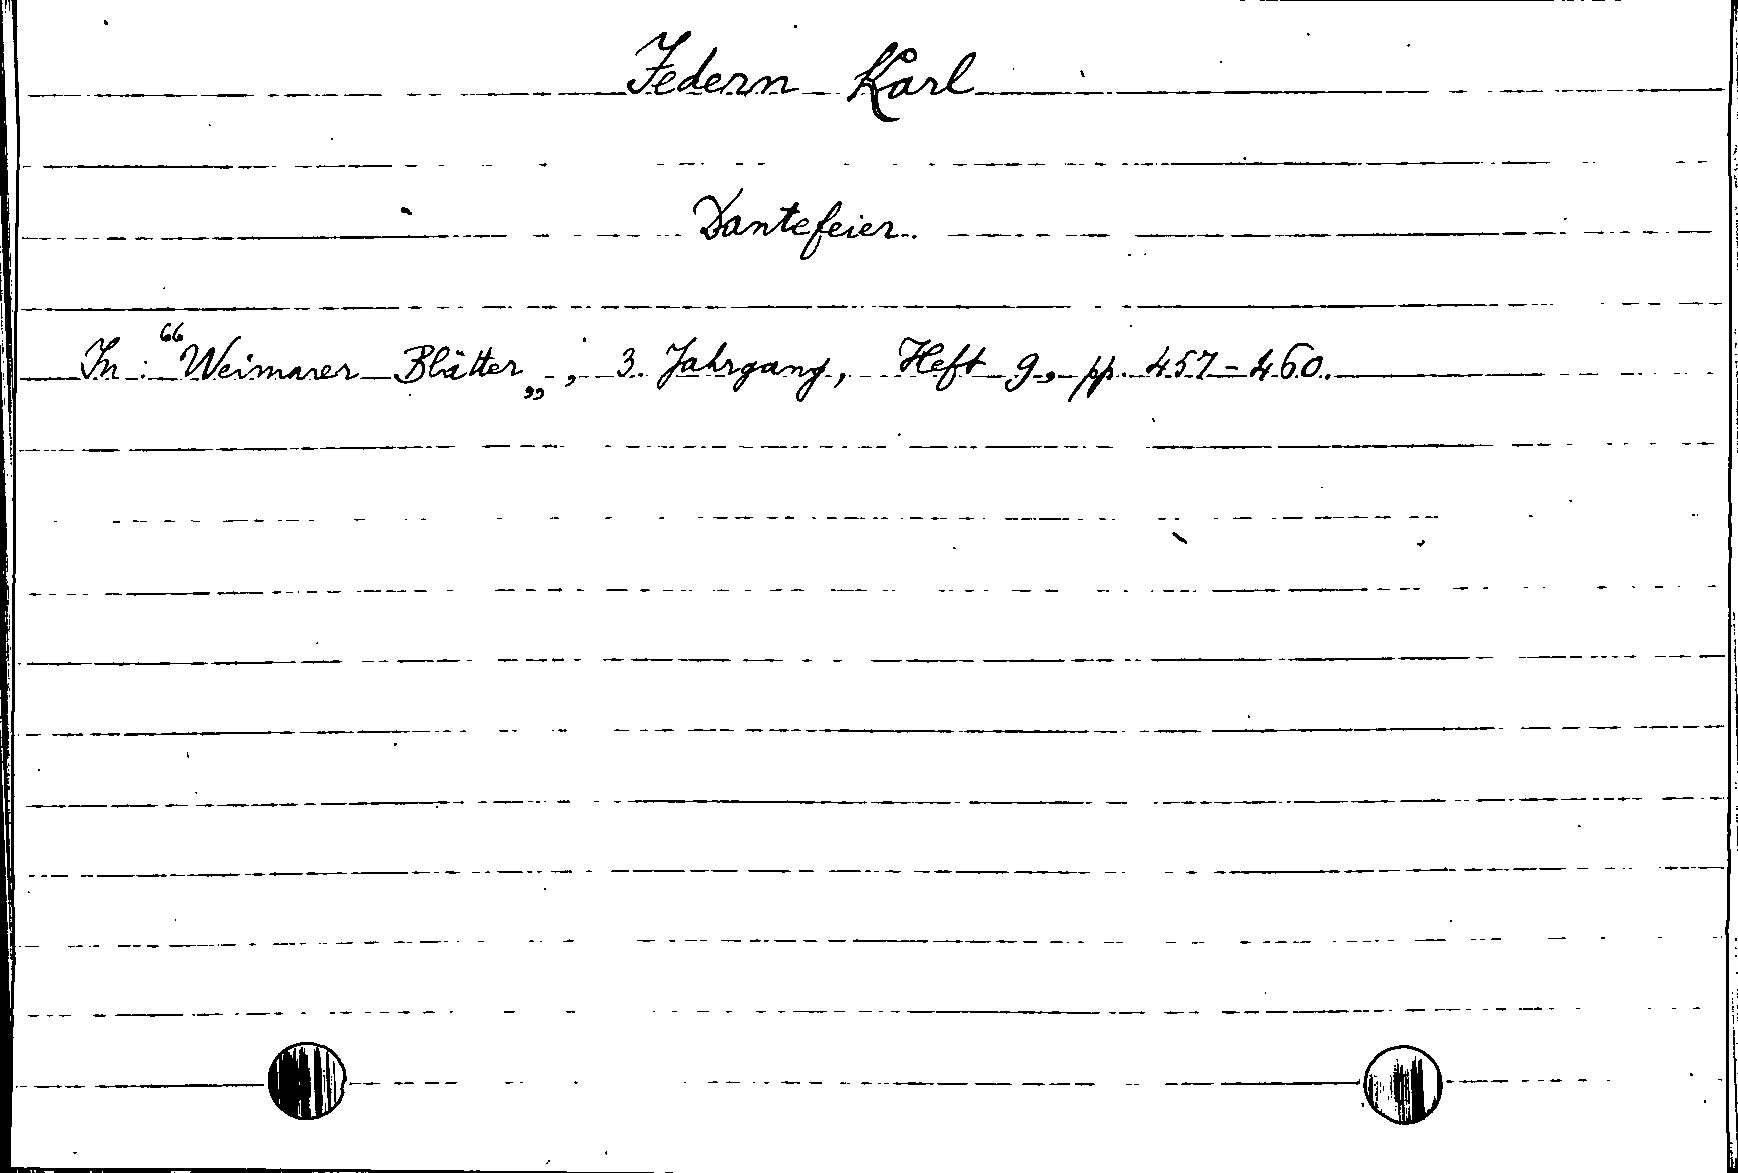 Federn Karl
Dantefeier.
In: “Weimarer Blätter„, 3. Jahrgang, Heft 9, pp. 457-460.